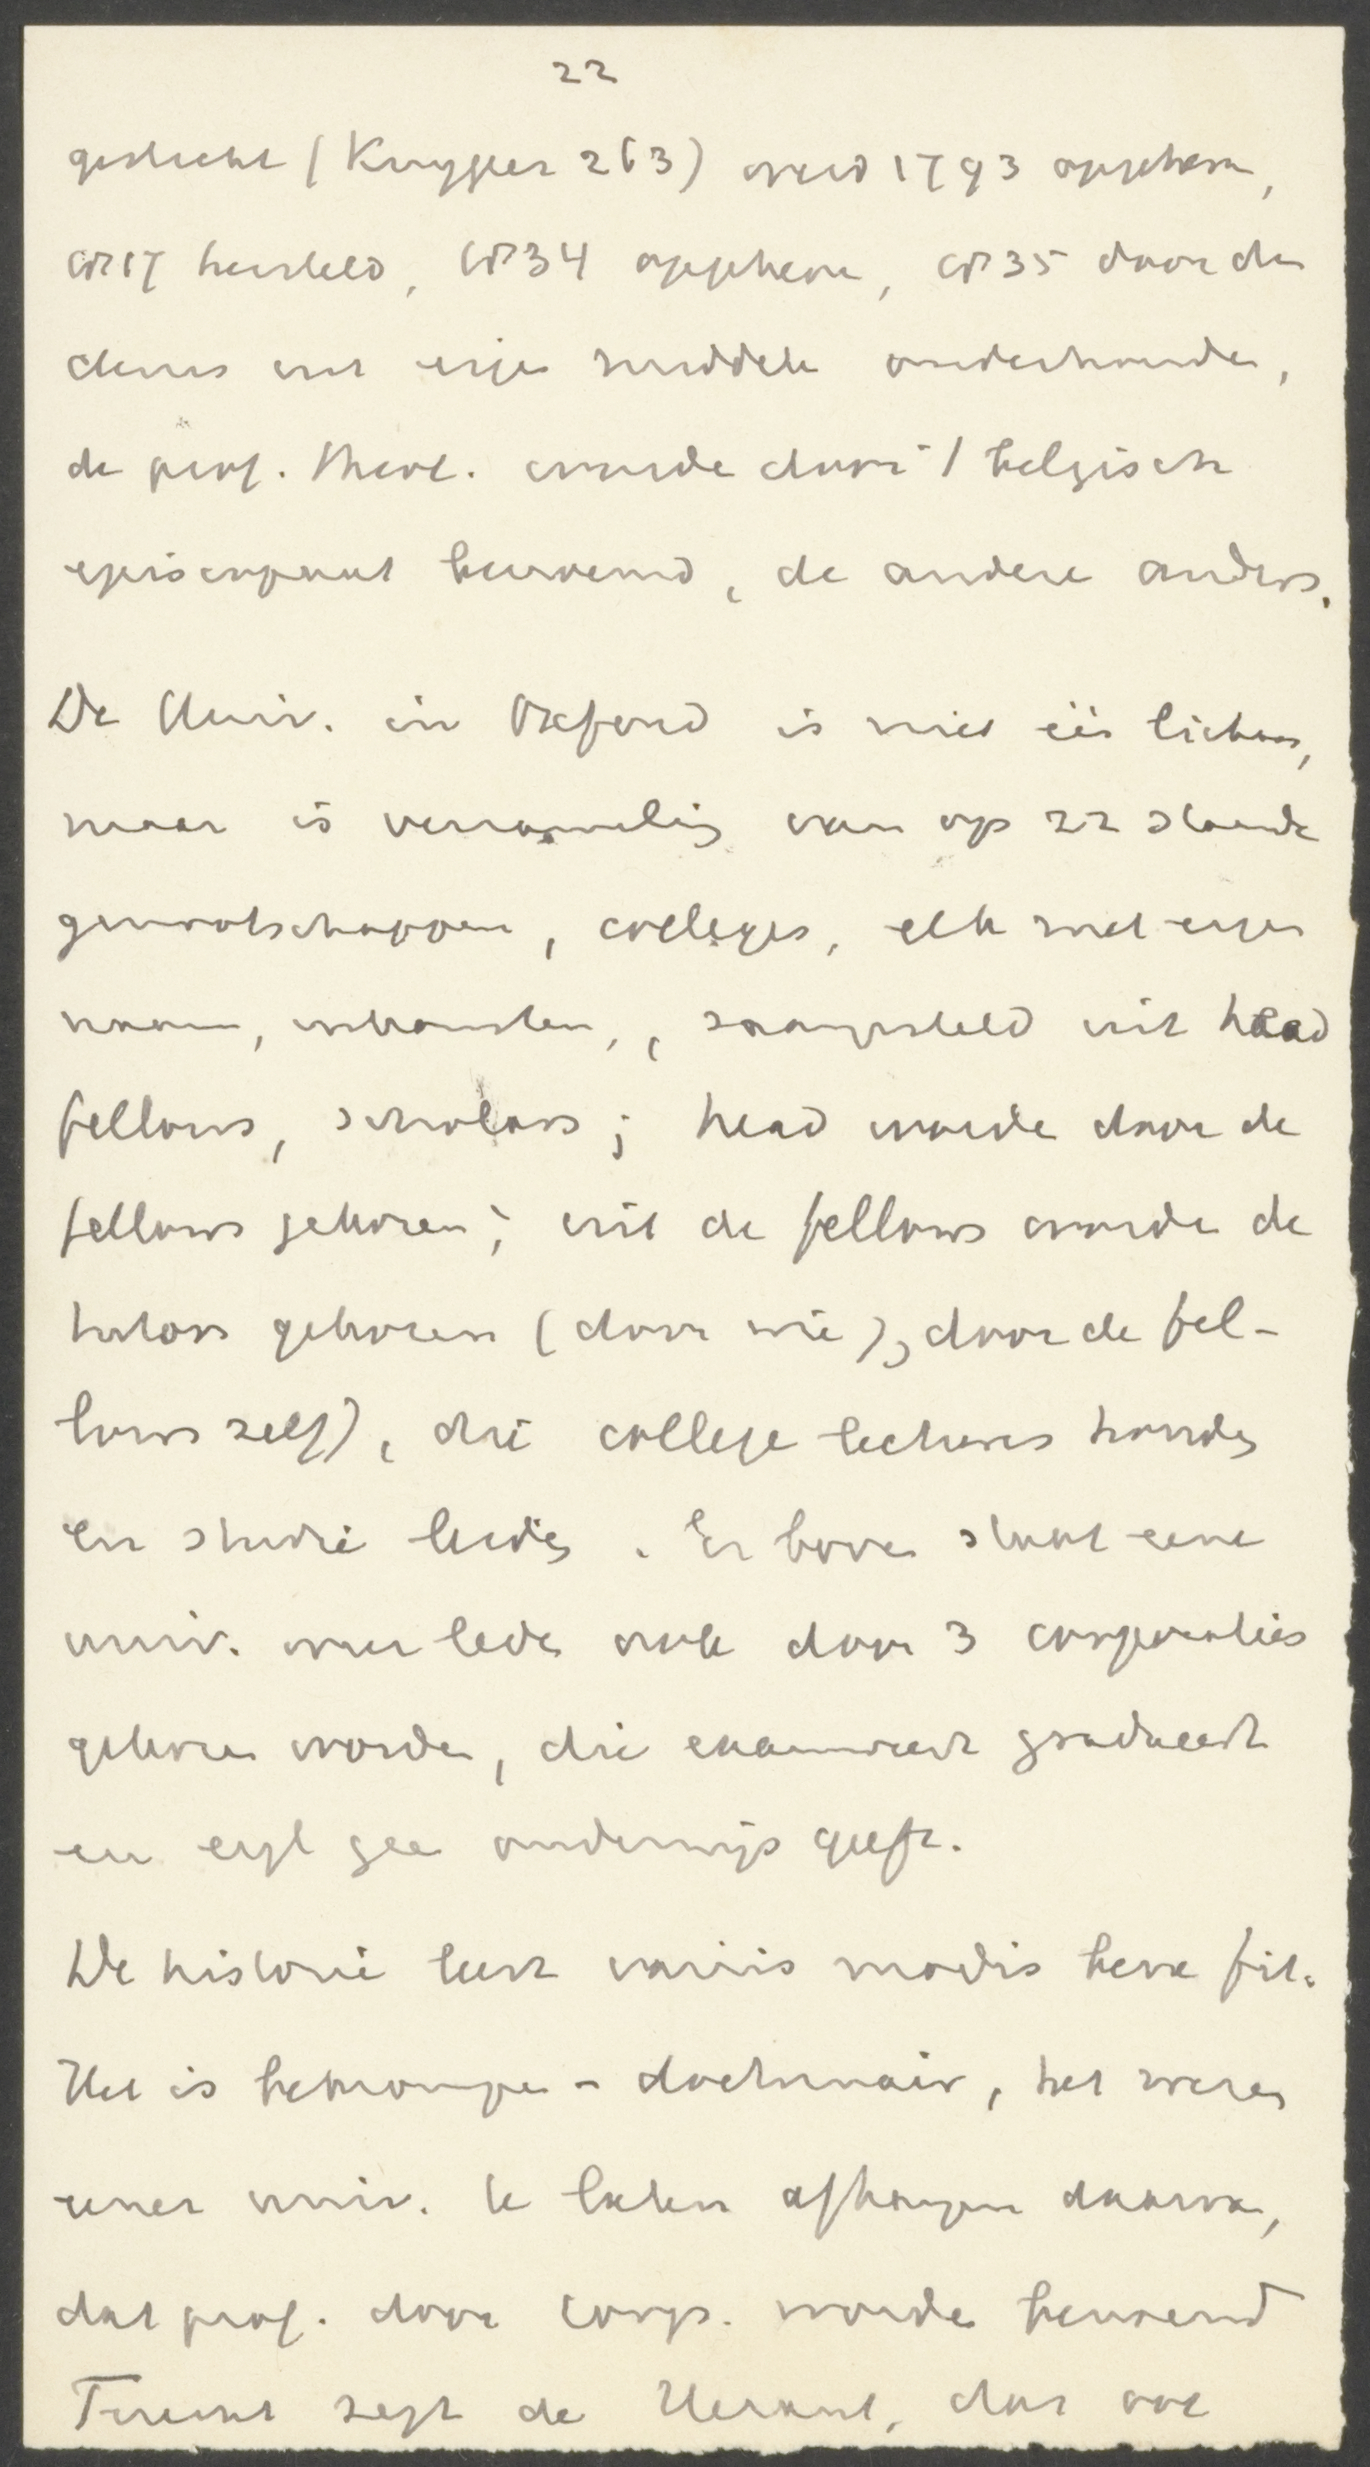 22
gesticht (Kuyper 263) werd 1793 opgeheven,
1817 hersteld, 1834 opgeheven, 1835 door de
clerus uit eigen middelen onderhouden,
de prof. theol. worden door 't belgisch
episcopaat benoemd, de andere anders.
De Univ. in Oxford is niet één lichaam,
maar is verzameling van op 22 staande
genootschappen, colleges, elk met eigen
naam, inkomsten, , saamgesteld uit head
fellows, scholars; head worde door de
fellows gekozen; uit de fellows worden de
tutors gekozen (door wie), door de fel-
lows zelf), die college lectures houden
en studie leiden. Er boven staat eene
univ. wier leden ook door 3 corporaties
gekozen worden, die examineert gradueert
en eigl geen onderwijs geeft.
De historie leert variis modis bene fit.
Het is bekrompen - doctrinair, het wezen
eener univ. te laten afhangen daarvan,
dat prof. door corp. worden benoemd
Terecht zegt de Heraut, dat ook